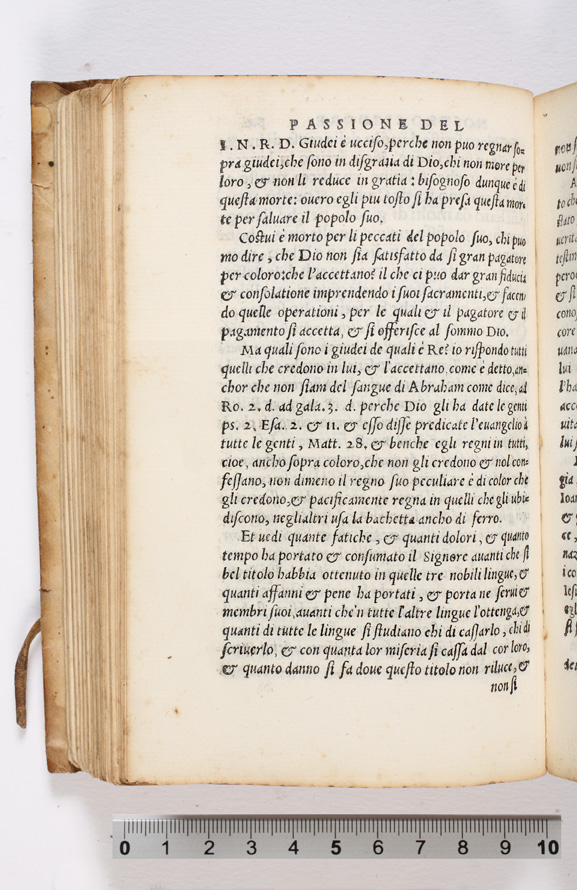 PASSIONE DEL
I. N. R. D. Giudei è ucciso, perche non puo regnar so=
pra giudei, che sono in disgratia di Dio, chi non more per
loro, & non li reduce in gratia: bisognoso dunque è di
questa morte: ouero egli piu tosto si ha presa questa mor=
te per saluare il popolo suo.
Costui è morto per li peccati del popolo suo, chi puo
mo dire, che Dio non sia satisfatto da sì gran pagatore
per coloro: che l'accettano? il che ci puo dar gran fiducia
& consolatione imprendendo i suoi sacramenti, & facen
do quelle operationi, per le quali & il pagatore & il
pagamento si accetta, & si offerisce al sommo Dio.
Ma quali sono i giudei de quali è Re? io rispondo tutti
quelli che credono in lui, & l'accettano come è detto, an=
chor che non siam del sangue di Abraham come dice, al
Ro. 2. d. ad gala. 3. d. perche Dio gli ha date le genti
ps. 2. Esa. 2. & 11. & esso disse predicate l'euangelio à
tutte le genti, Matt. 28. & benche egli regni in tutti,
cioe, ancho sopra coloro, che non gli credono & nol con=
fessano, non dimeno il regno suo peculiare è di color che
gli credono, & pacificamente regna in quelli che gli ubi=
discono, neglialtri usa la bachetta ancho di ferro.
Et uedi quante fatiche, & quanti dolori, & quanto
tempo ha portato & consumato il Signore auanti che sì
bel titolo habbia ottenuto in quelle tre nobili lingue, &
quanti affanni & pene ha portati, & porta ne serui &
membri suoi, auanti che'n tutte l'altre lingue l'ottenga, &
quanti di tutte le lingue si studiano chi di cassarlo, chi di
scriuerlo, & con quanta lor miseria si cassa dal cor loro,
& quanto danno si fa doue questo titolo non riluce, &
non si
0 1 2 3 4 5 6 7 8 9 10